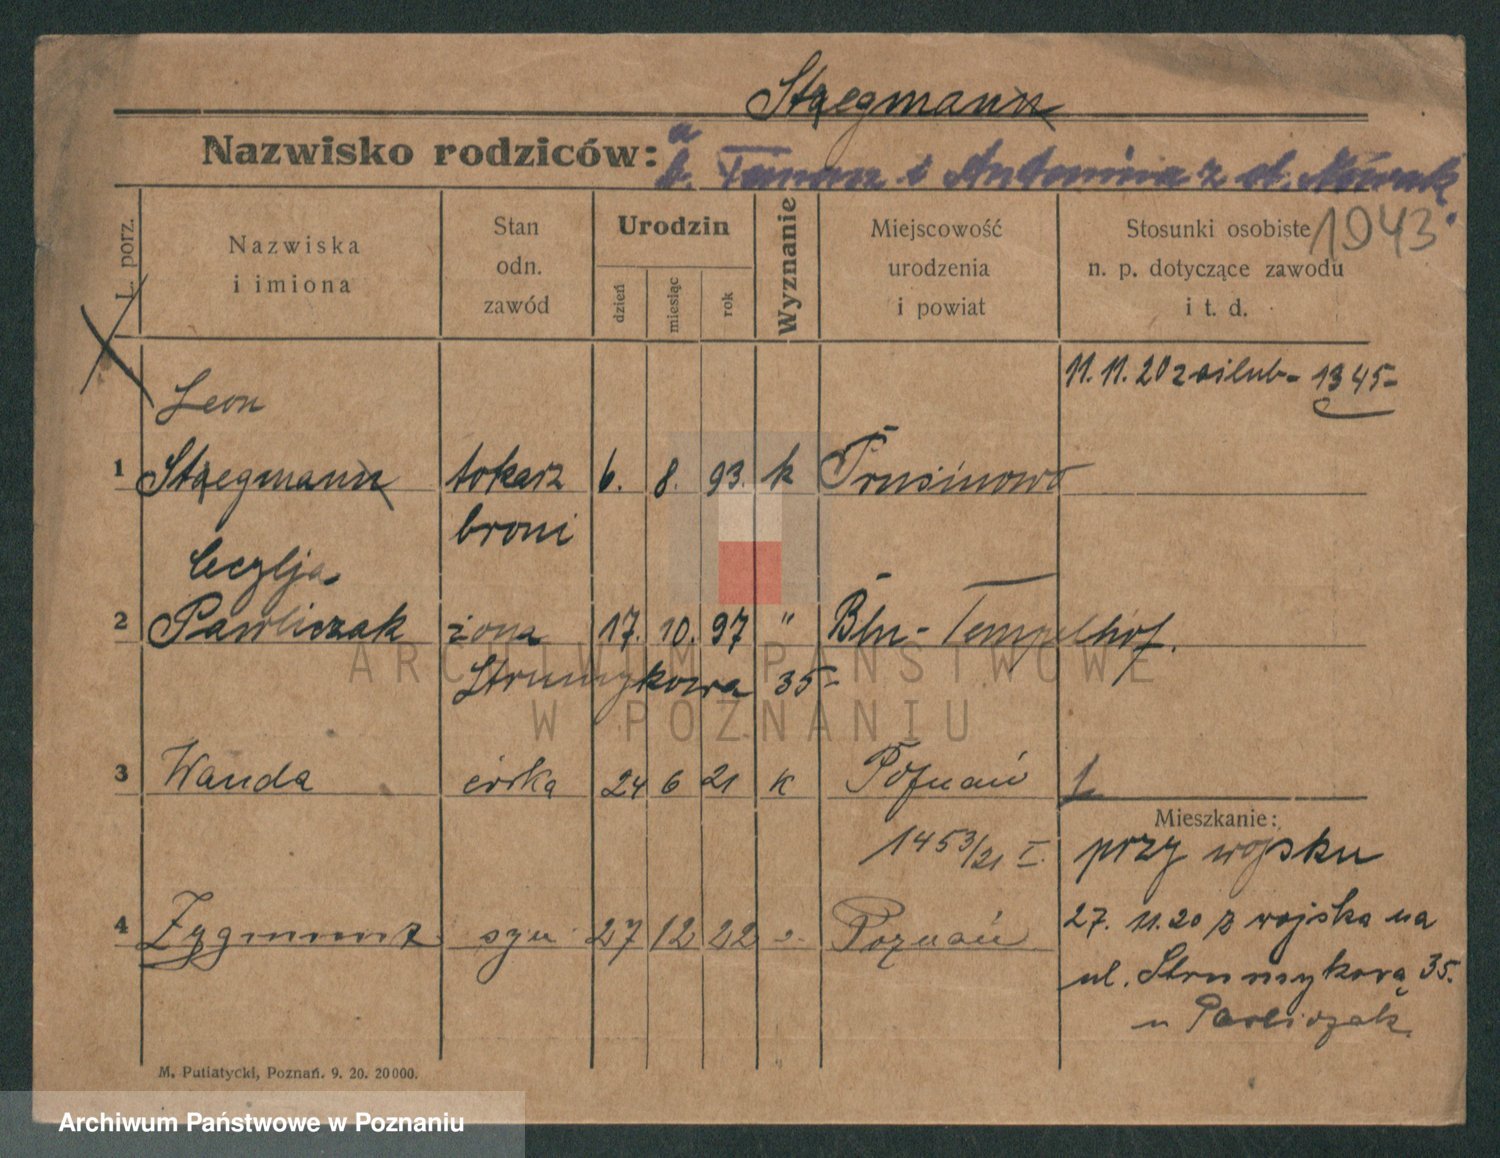 Staegmann
Nazwisko rodziców: Tomasz i Antonina z d. Nowak.
L. porz.
Nazwiska i imiona
Stan odn. zawód
Urodzin
dzień
miesiąc
rok
Wyznanie
Miejscowość urodzenia i powiat
Stosunki osobiste
n. p. dotyczące zawodu
i t. d.
1943
11. 11. 20 zaślub- 1345-
Leon
1 Staegmann tokarz 6. 8. 93. k Trusinowo
broni
Cecylja
2 Pawliczak żona 17. 10. 97 " Bln- Tempelhof.
Strumykowa 35-
3 Wanda córka 24 6 21 k Poznań
Mieszkanie:
1453/21 I. przy wojsku
4 Zygmunt syn 27 12 22 Poznań
27. 11. 20 z wojska na
ul. Strumykową 35.
u Pawliczak
M. Putiatycki, Poznań. 9. 20. 20000.
ARCHIWUM PAŃSTWOWE
W POZNANIU
Archiwum Państwowe w Poznaniu